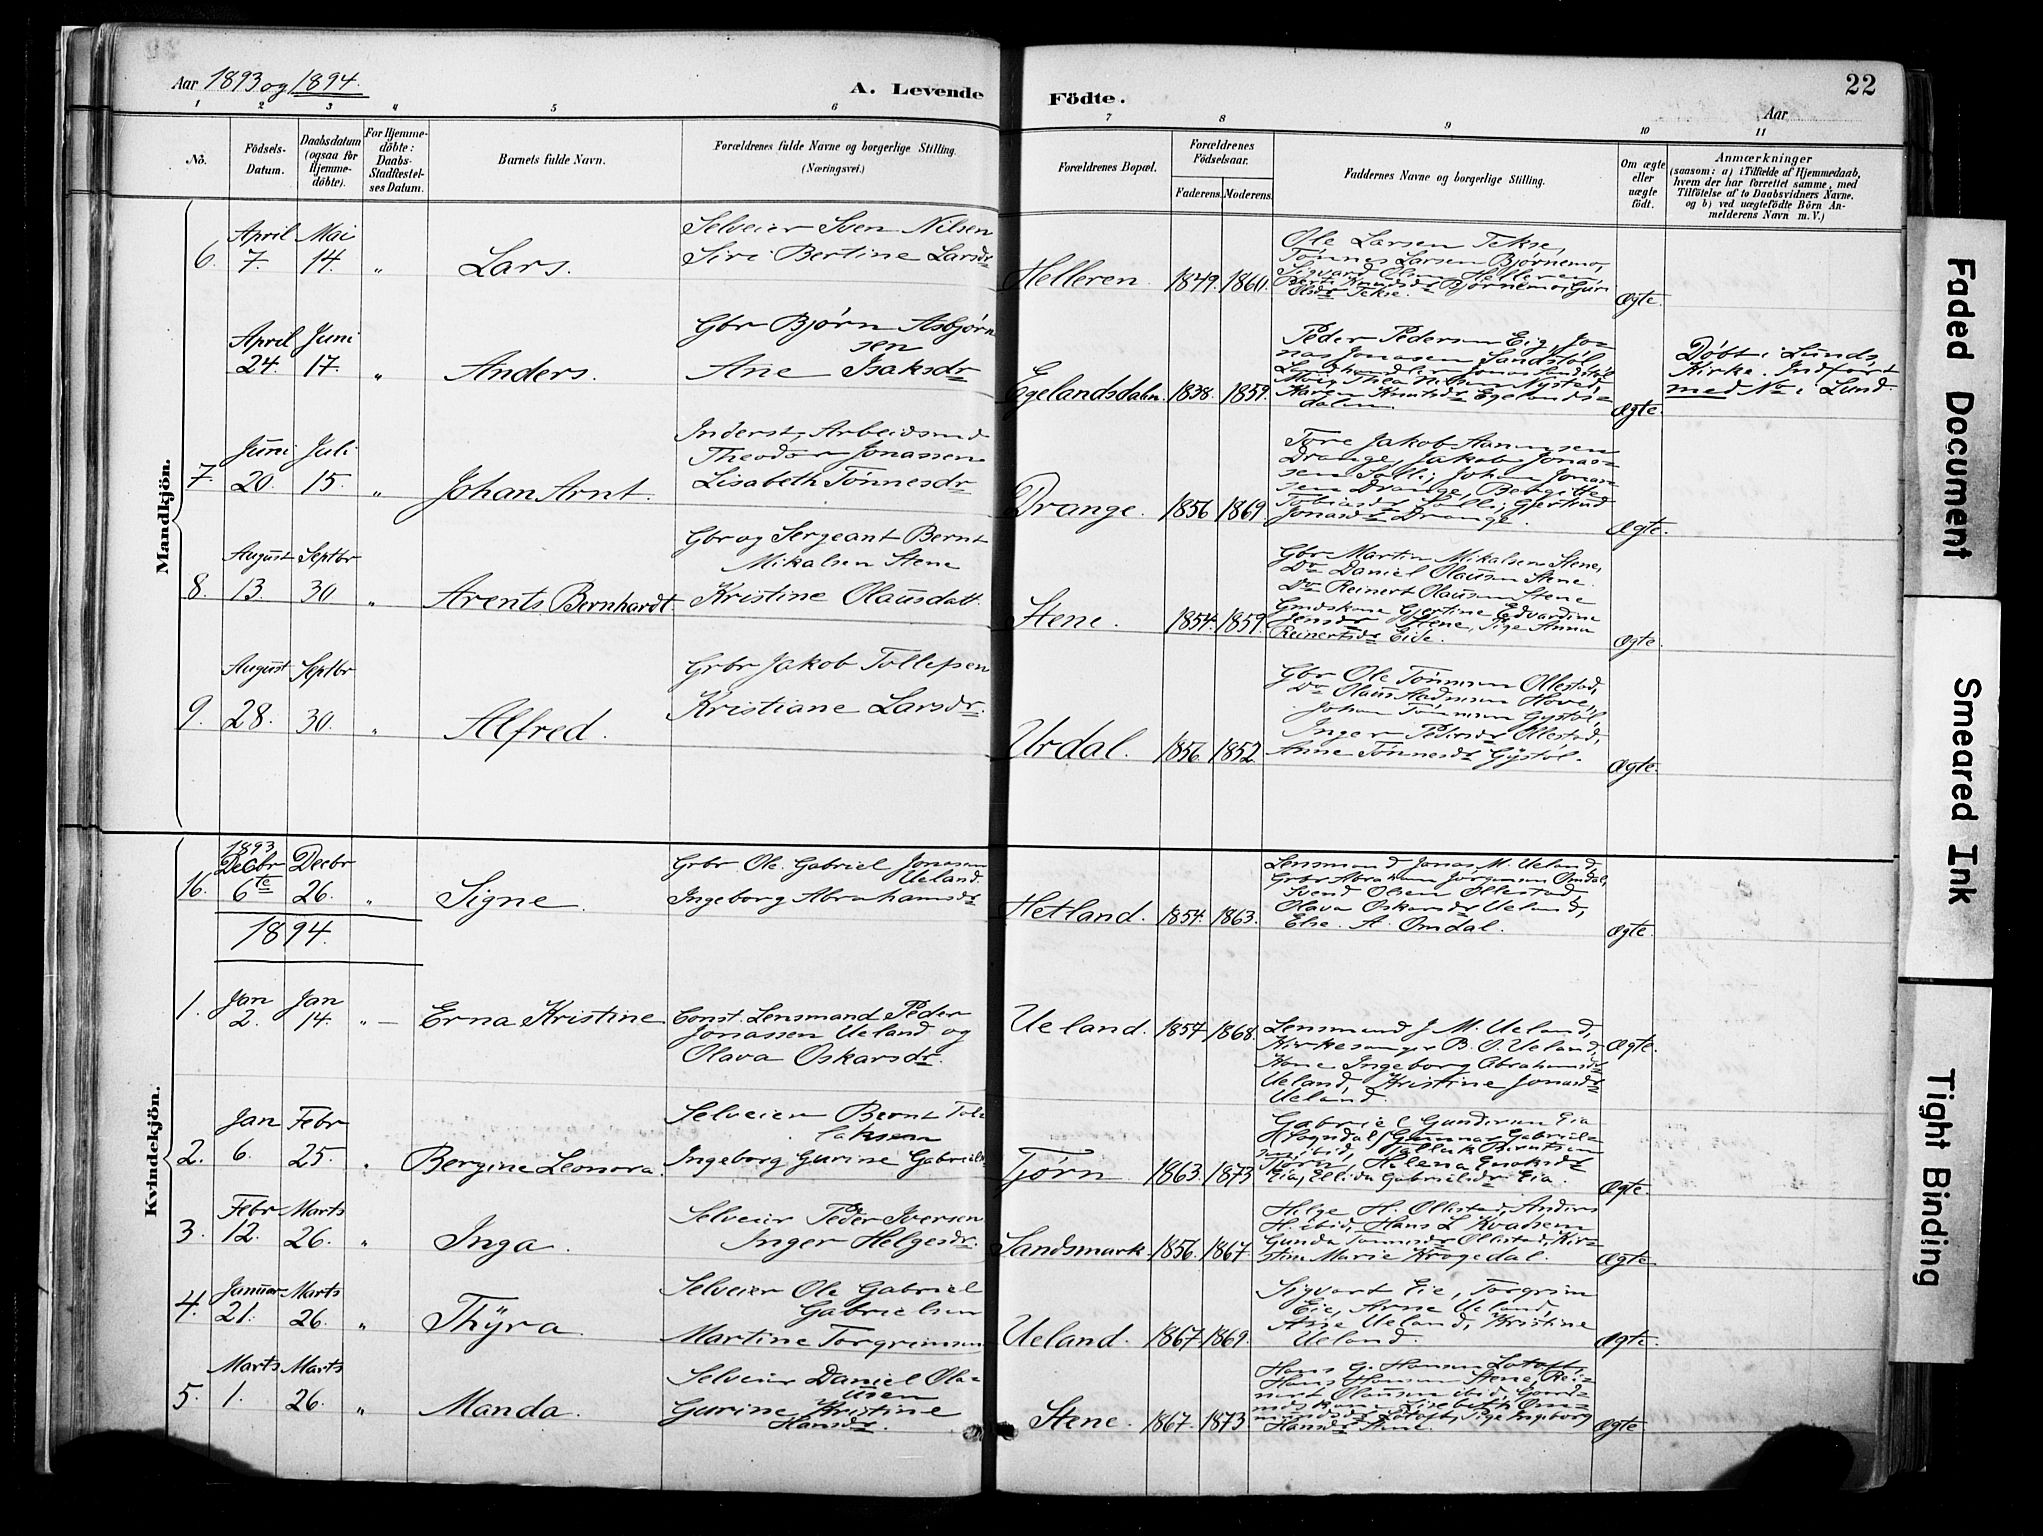 Aar 1893 og 1894.
A. Levende Födte.
22
Aar
1 2 3 4 5 6 7 8 9 10 11
No.
Födsels-Datum.
Daabsdatum (ogsaa for Hjemme-döbte).
For Hjemme-döbte: Daabs-Stadfæstel-ses Datum.
Barnets fulde Navn.
Forældrenes fulde Navne og borgerlige Stilling.
(Næringsvei.)
Forældrenes Bopæl.
Forældrenes Födselsaar.
Faderens. Moderens.
Faddernes Navne og borgerlige Stilling.
Om ægte eller uægte født.
Anmærkninger
(saasom: a) i Tilfælde af Hjemmedaab,
hvem der har forrettet samme, med
Tilföielse af to Daabsvidners Navne.
og b) ved uægtefödte Börn An-
melderens Navn m. V.)
Mandkjön.
6. April 7. Mai 14. " Lars.
Selveier Sven Nilsen
Siri Bertine Larsdr
Helleren 1849. 1860.
Ole Larsen Tekse,
Tønnes Larsen Bjørnemo,
Sigvard Olsen Helleren,
Bjørnemo, Guri
Olsdr Tekse.
Ægte
April 24. Juni 17. " Anders.
Gbr Bjørn Asbjørn
sen
Ane Isaksdr
Egelandsdalen. 1838. 1859.
Peder Pedersen Eig, Jo-
nas Jonasen Sandstøl,
Thea Nilsen Nysted,
Karen Knutsdr Egelands-
dalen.
Ægte.
Døbt i Lunds
Kirke. Indført
med No i Lund.
7. Juni 20. Juli 15. " Johan Arnt.
Inderst, Arbeidsmd
Theodor Jonassen
Lisabeth Tønnesdr
Drange. 1856 1869.
Tore Jakob Aanensen
Drange, Jakob Jonas-
sen Solli, Johan Jonas-
sen Drange, Bergitte
Tobiasdr Solli, Gjertrud
Jonasdr Drange.
Ægte.
8. August 13. Septbr 30 " Arents Bernhardt
Gbr og Sergeant Bernt
Mikalsen Stene
Kristine Olausdatt.
Stene. 1854. 1859.
Gbr Martin Mikalsen Stene,
Do Daniel Olausen Stene.
Do Reinert Olausen Stene
Gmdskone Gjertine Edvardine
Jensdr Stene, Pige Anna
Reinertsdr Eide.
Ægte.
9. August 28. Septbr 30. " Alfred.
Grbr Jakob Tollefsen
Kristiane Larsdr.
Urdal. 1856. 1852.
Gbr Ole Tønnesen Ollestad,
Do Olaus Aadnesen Hove,
Johan Tønnesen Gystøl,
Inger Pedersdr Ollestad,
Anne Tønnesdr Gystøl.
Ægte.
Kvindekjön.
16. 1893 Decbr 6te Decbr 26. " Signe.
Grbr Ole Gabriel Jonasen
Ueland.
Ingeborg Abrahamsdr
Hetland. 1854. 1863.
Lensmand Jonas M. Ueland,
Grbr Abraham Jørgensen Omdal,
Svend Olsen Ollestad,
Olava Oskarsdr Ueland,
Else A. Omdal.
Ægte.
1894.
1. Jan 2. Jan 14. " — Erna Kristine
Const. Lensmand Peder
Jonassen Ueland og
Olava Oskarsdr.
Ueland. 1857 1868.
Lensmand J. M. Ueland,
Kirkesanger B. O. Ueland,
Kone Ingeborg Abrahamsdr
Ueland, Kristine Jonasdr
Ueland.
Ægte.
2. Jan 6. Febr 25. " Bergine Leonora.
Selveier Bernt Tol-
laksen
Ingeborg Gurine Gabrielsdr
Tjørn 1863. 1873
Gabriel Gundersen Eia
Sogndal, Gunnar Gabriel-
sen ibid, Tollak Berntsen
Tjørn, Helena Enoksdr
Eia, Ellida Gabrielsdr Eia.
Ægte.
3. Febr 12. Marts 26. " Inga.
Selveier Peder Iversen
Inger Helgesdr.
Sandsmark. 1856. 1867.
Helge H. Ollestad, Anders
H. ibid, Hans L. Kvassem
Gunda Tønnesdr Ollestad, Kir-
stine Marie Krogedal.
Ægte.
4. Januar 21. Marts 26. " Thyra.
Selveier Ole Gabriel
Gabrielsen
Martine Torgrimsen
Ueland. 1867 1869.
Sigvart Eie, Torgrim
Eie, Arne Ueland,
Ane Ueland, Kristine
Ueland.
Ægte.
5. Marts 1. Marts 26. " Manda.
Selveier Daniel Ola-
usen
Gurine Kristine
Hansdr.
Stene. 1867. 1873
Hans G. Hansen Lotoft,
Hans Hansen Stene, Rei-
nert Olausen ibid, Gaard-
mdskone Lisebeth Om-
mundsdr Lotoft, Pige Ingeborg
Hansdr Stene.
Ægte.
Faded Document
Smeared Ink
Tight Binding